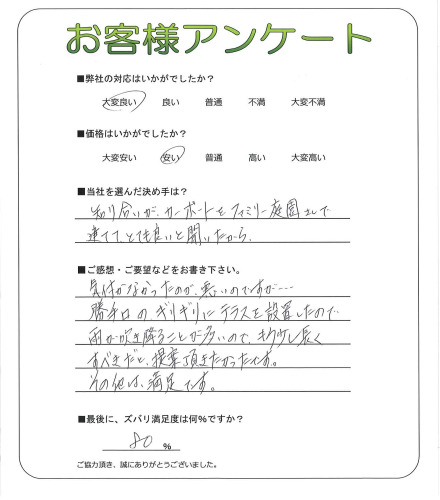 お客様アンケート
■弊社の対応はいかがでしたか？
大変良い 良い 普通 不満 大変不満
■価格はいかがでしたか？
大変安い 安い 普通 高い 大変高い
■当社を選んだ決め手は？
知り合いが、カーポートをファミリー庭園さんで
建てて、とても良いと聞いたから。
■ご感想・ご要望などをお書き下さい。
気付かなかったのが、悪いのですが…
勝手口のギリギリにテラスを設置したので
雨が吹き降ることが多いので、もう少し長く
すべきだと、提案頂きたかったです。
その他は、満足です。
■最後に、ズバリ満足度は何％ですか？
80 %
ご協力頂き、誠にありがとうございました。